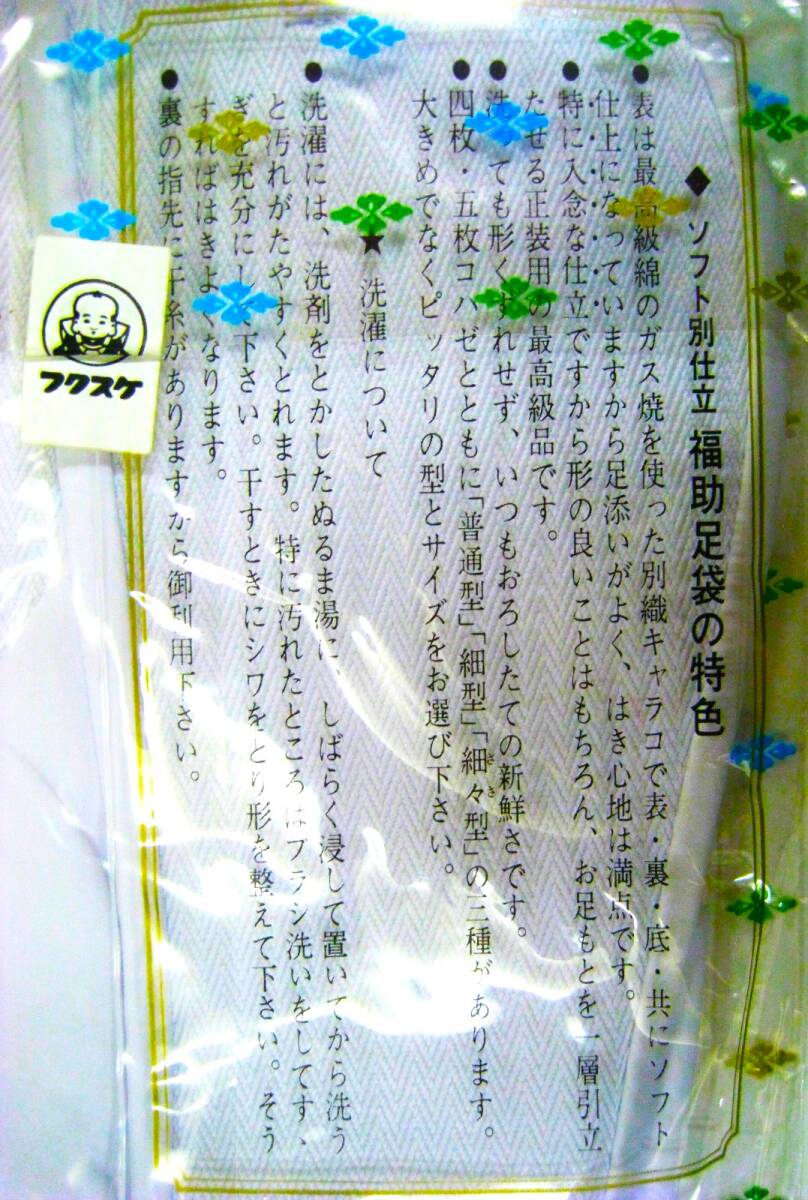 ◆ ソフト別仕立 福助足袋の特色
●表は最高級綿のガス焼を使った別織キャラコで表・裏・底・共にソフト
仕上になっていますから足添いがよく、はき心地は満点です。
●特に入念な仕立ですから形の良いことはもちろん、お足もとを一層引立
たせる正装用の最高級品です。
●洗っても形くずれせず、いつもおろしたての新鮮さです。
●四枚・五枚コハゼとともに「普通型」「細型」「細々型」の三種があります。
ささ
大きめでなくピッタリの型とサイズをお選び下さい。
★ 洗濯について
●洗濯には、洗剤をとかしたぬるま湯に、しばらく浸して置いてから洗う
と汚れがたやすくとれます。特に汚れたところはブラシ洗いをしてすゝ
ぎを充分にして下さい。干すときにシワをとり形を整えて下さい。そう
すればはきよくなります。
●裏の指先に干糸がありますから御利用下さい。
フクスケ